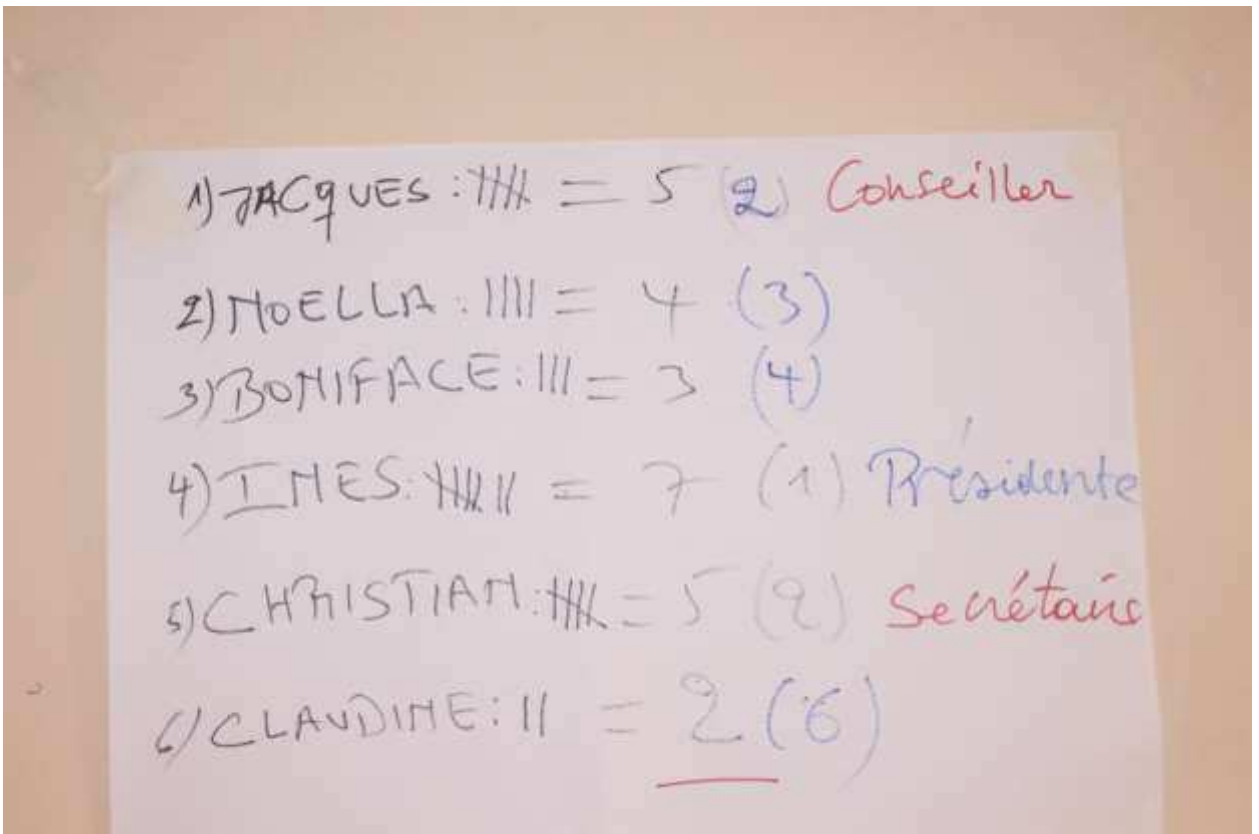 1) JACQUES : 卌 = 5 (2) Conseiller
2) NOELLA : |||| = 4 (3)
3) BONIFACE : ||| = 3 (4)
4) INES : 卌 || = 7 (1) Présidente
5) CHRISTIAN : 卌 = 5 (2) Secrétaire
6) CLAUDINE : || = 2 (6)